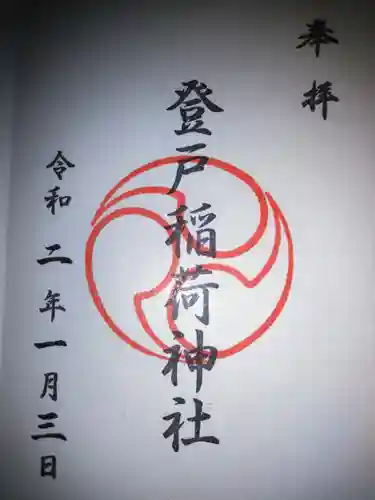 奉拝
登戸稲荷神社
令和二年一月三日